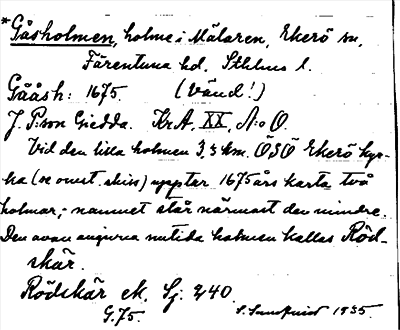 *Gåsholmen, holme i Mälaren, Ekerö sn,
Färentuna hd, Sthlms l.
Gååsh: 1675. (Vänd!)
J. P:son Giedda. Kr.A. XX, N:o O.
Vid den lilla holmen 3,3 km. ÖSÖ Ekerö kyr-
ka (se omst. skiss) upptar 1675 års karta två
holmar,- namnet står närmast den mindre.
Den ovan angivna nutida holmen kallas Röd-
skär.
Rödskär ek. Sj. 240.
G.75. S. Sundqvist 1935.